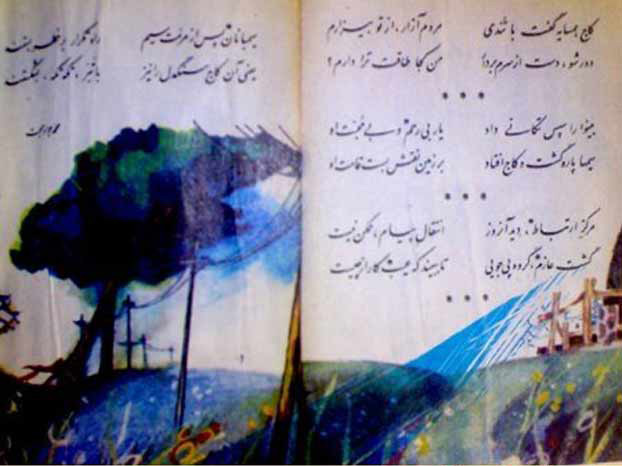 کاج همسایه گفت با تندی مردم آزار، از تو بیزارم
دور شو، دست از سرم بردار من کجا طاقت ترا دارم؟
* * *
بینوا را سپس تکانی داد یار بی رحم و بی محبت او
سیمها پاره گشت و کاج افتاد بر زمین نقش بست قامت او
* * *
مرکز ارتباط، دید آنروز انتقال پیام، ممکن نیست
گشت عازم، گروه پی جویی تا ببیند که عیب کار از چیست
* * *
سیمبانان پس از مرمت سیم راه تکرار بر خطر بستند
یعنی آن کاج سنگدل را نیز با تبر، تکه تکه، بشکستند
محمد جواد محبت